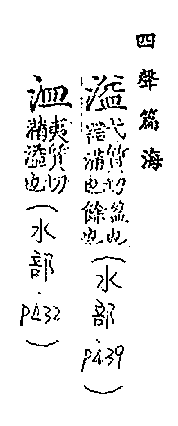 四聲篇海
溢弋質切盈也滿也餘也(水部.P.439)
洫夷質切滿溢也(水部.P.432)